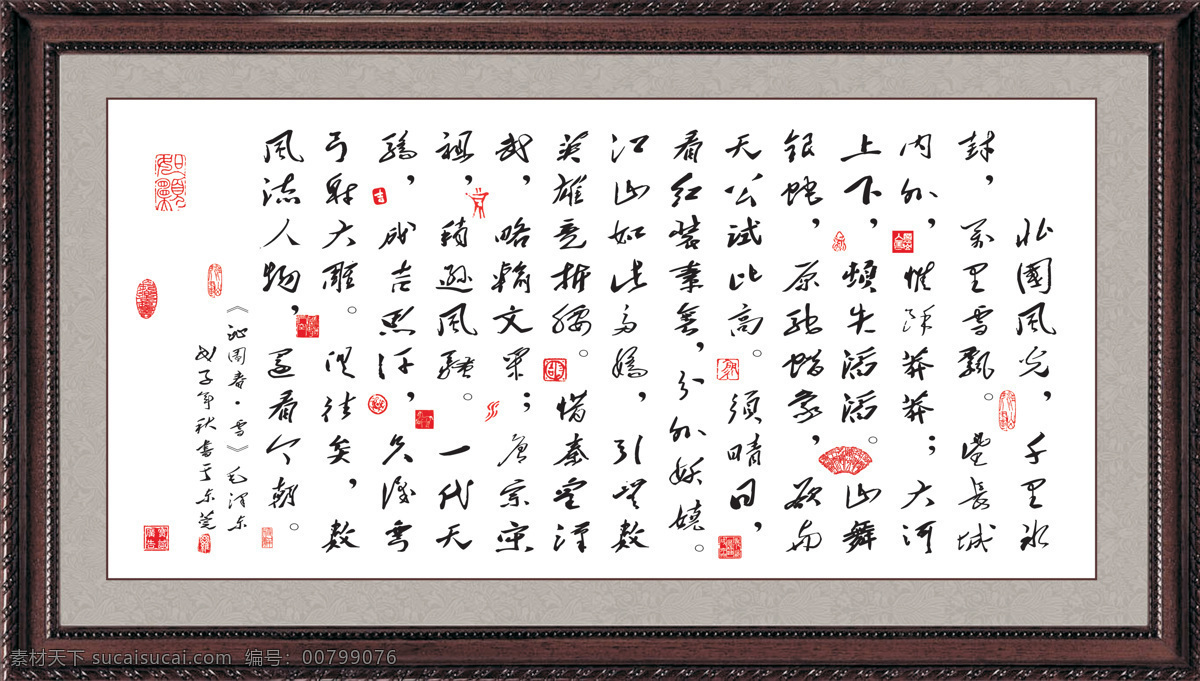 北國風光，千里冰
封，萬里雪飄。望長城
内外，惟餘莽莽；大河
上下，頓失滔滔。山舞
銀蛇，原馳蜡象，欲与
天公試比高。須晴日，
看红装素裹，分外妖嬈。
江山如此多嬌，引無數
英雄竞折腰。惜秦皇漢
武，略輸文采；唐宗宋
祖，稍遜風騷。一代天
驕，成吉思汗，只識彎
弓射大雕。俱往矣，數
風流人物，還看今朝。
《沁園春·雪》毛澤东
戊子年秋書于东莞
素材天下 sucaisucai.com 编号：00799076